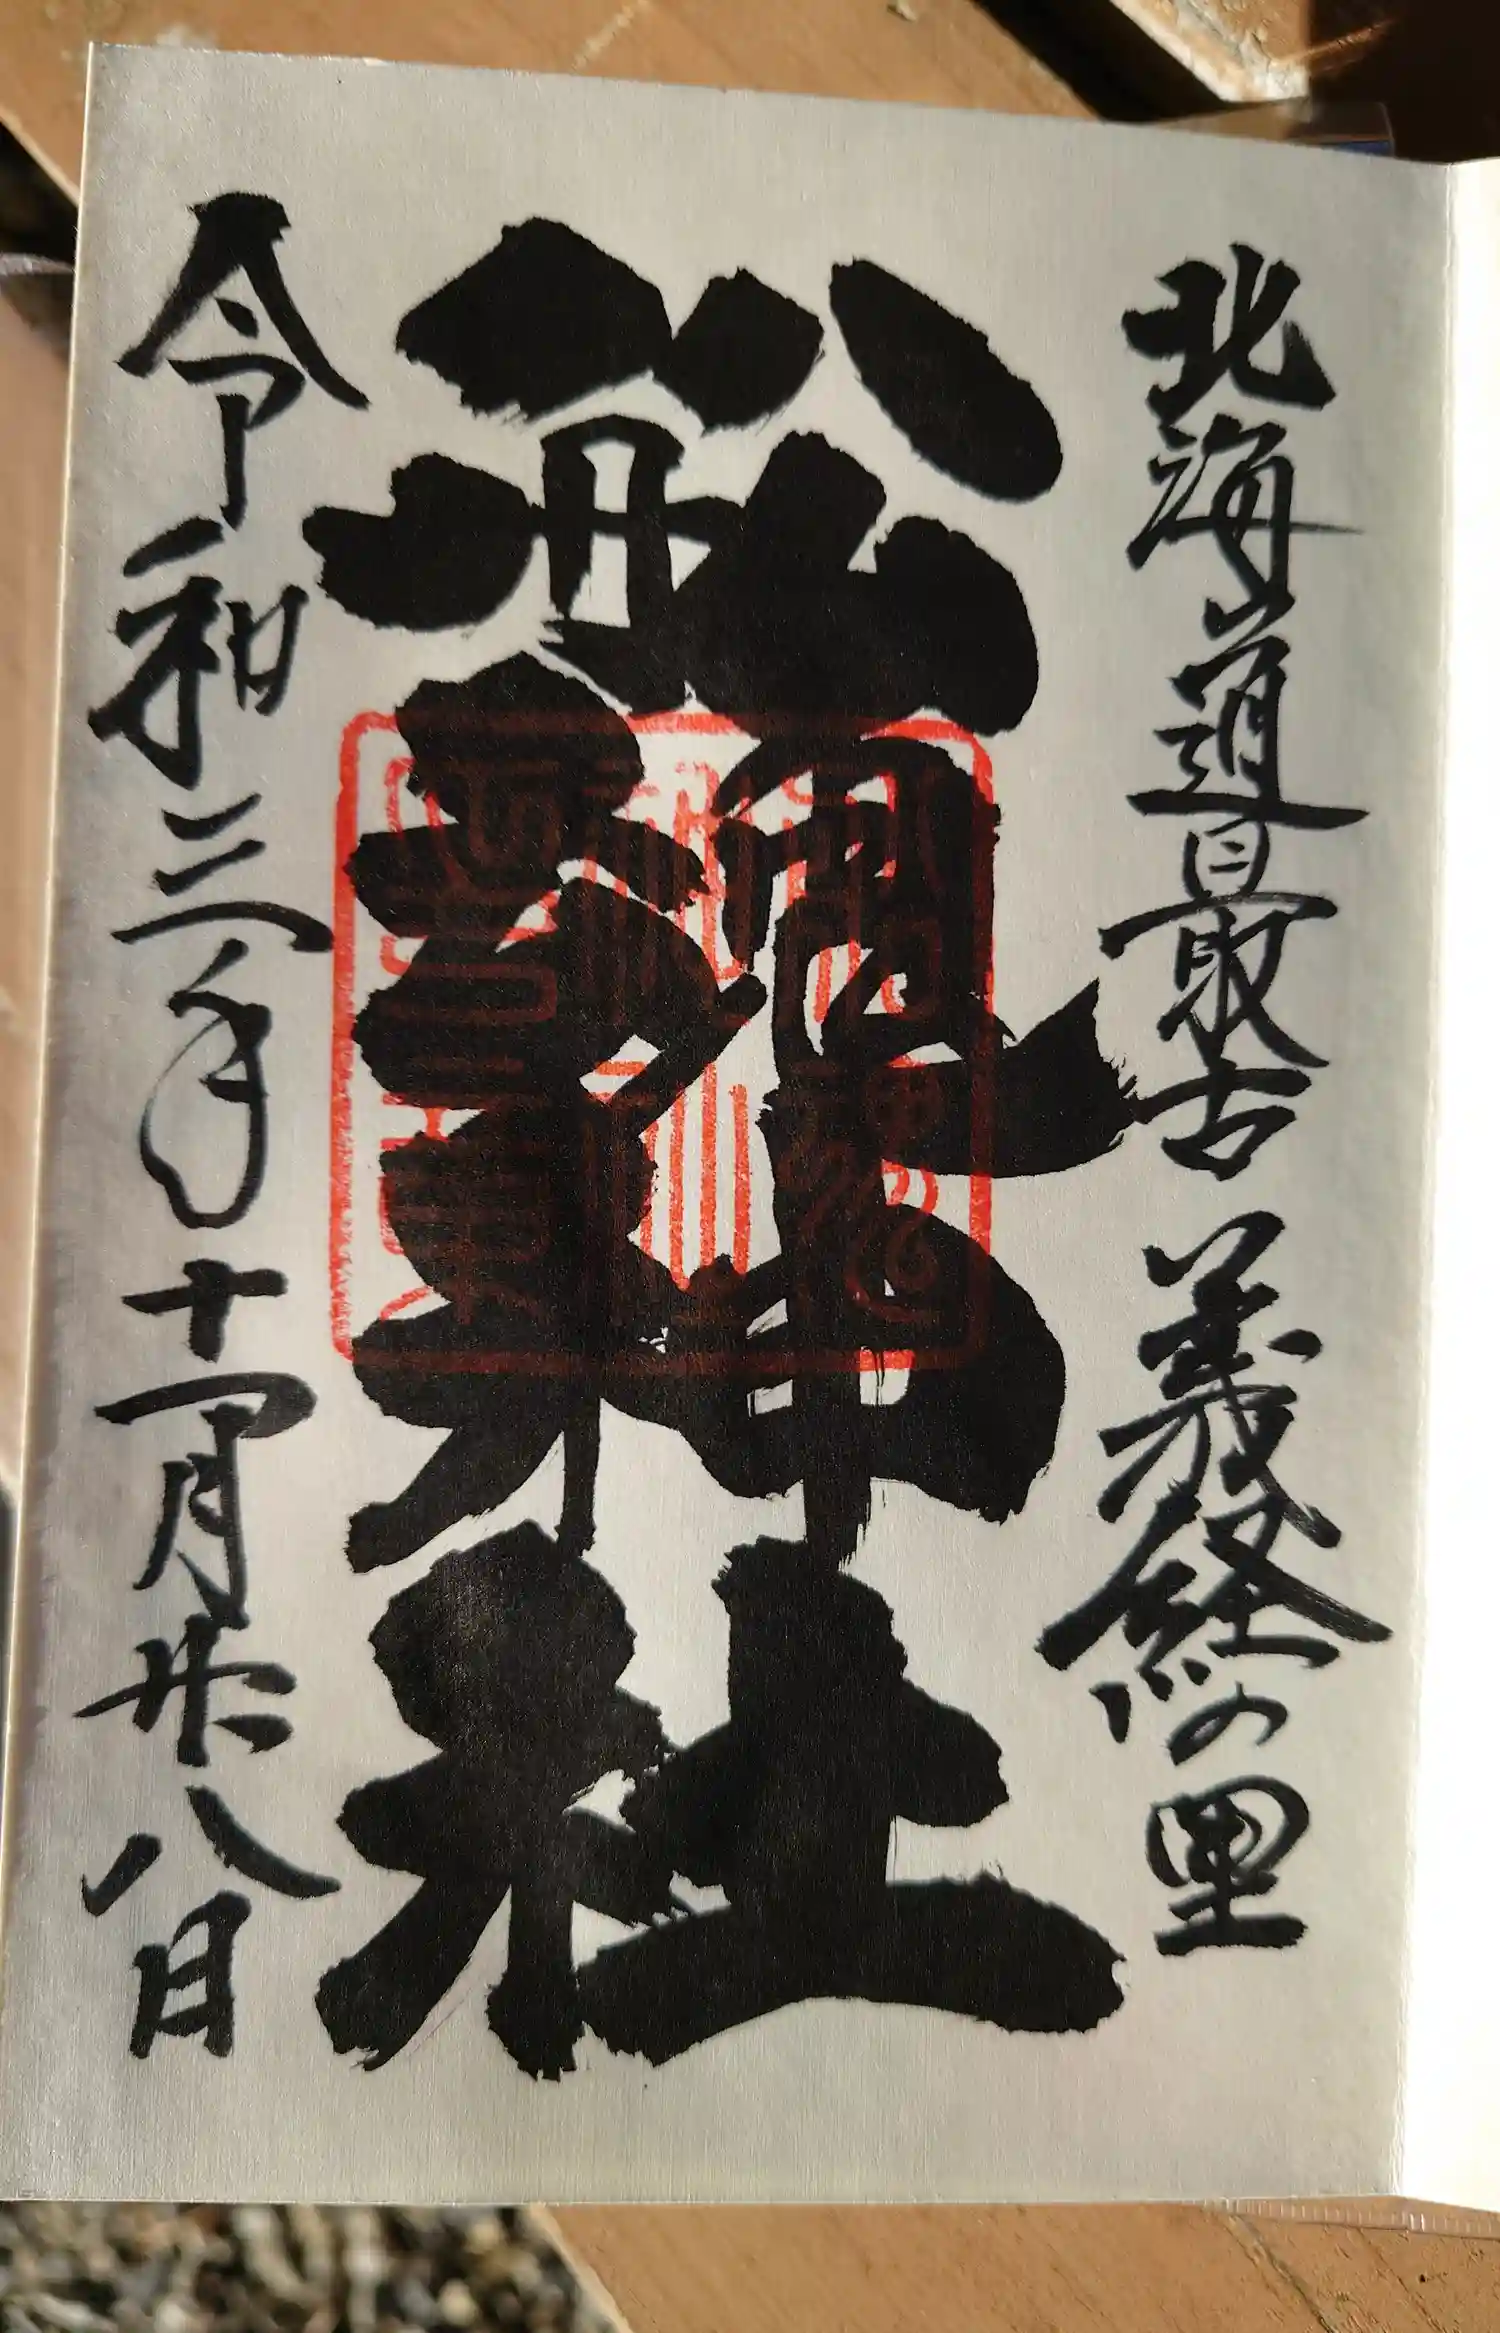 北海道最古 義経の里
舩魂神社
令和三年十一月廿八日